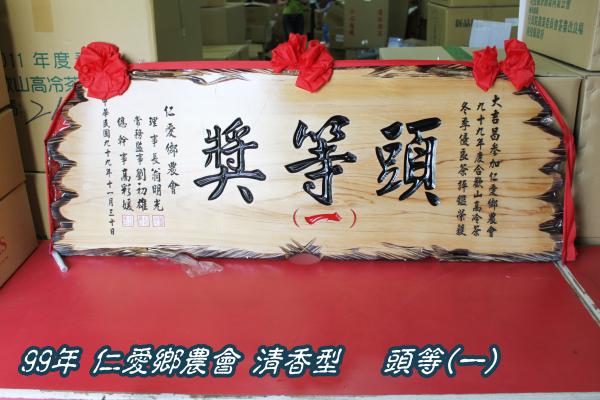 大吉昌參加仁愛鄉農會
九十九年度合歡山高冷茶
冬季優良茶評鑑榮穫
頭等獎
(一)
仁愛鄉農會
理事長翁明光
常務監事劉初雄
總幹事高彩媛
中華民國九十九年十一月三十日
99年 仁愛鄉農會 清香型 頭等(一)